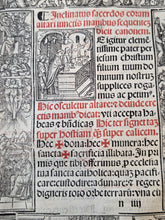 Inclinatus sacerdos coram
altari iunctis manibus sequentē
dicit canonem.
E igitur clemē
tissime pater per
iesum christum
filium tuum do
minum nostrum
supplices roga
mus ac petimus
Hic osculetur altare: deinde erec
tus manib⁹ dicat: vti accepta ha
beas & bñdicas Hic ter signet se
super hostiam & super calicem.
Hec ✠ dona: Hec ✠ munera: hec
sancta ✠ sacrificia illibata. In pri
mis que tibi offerimus pro eccle
digneris toto orbe terrarũ
n iiij